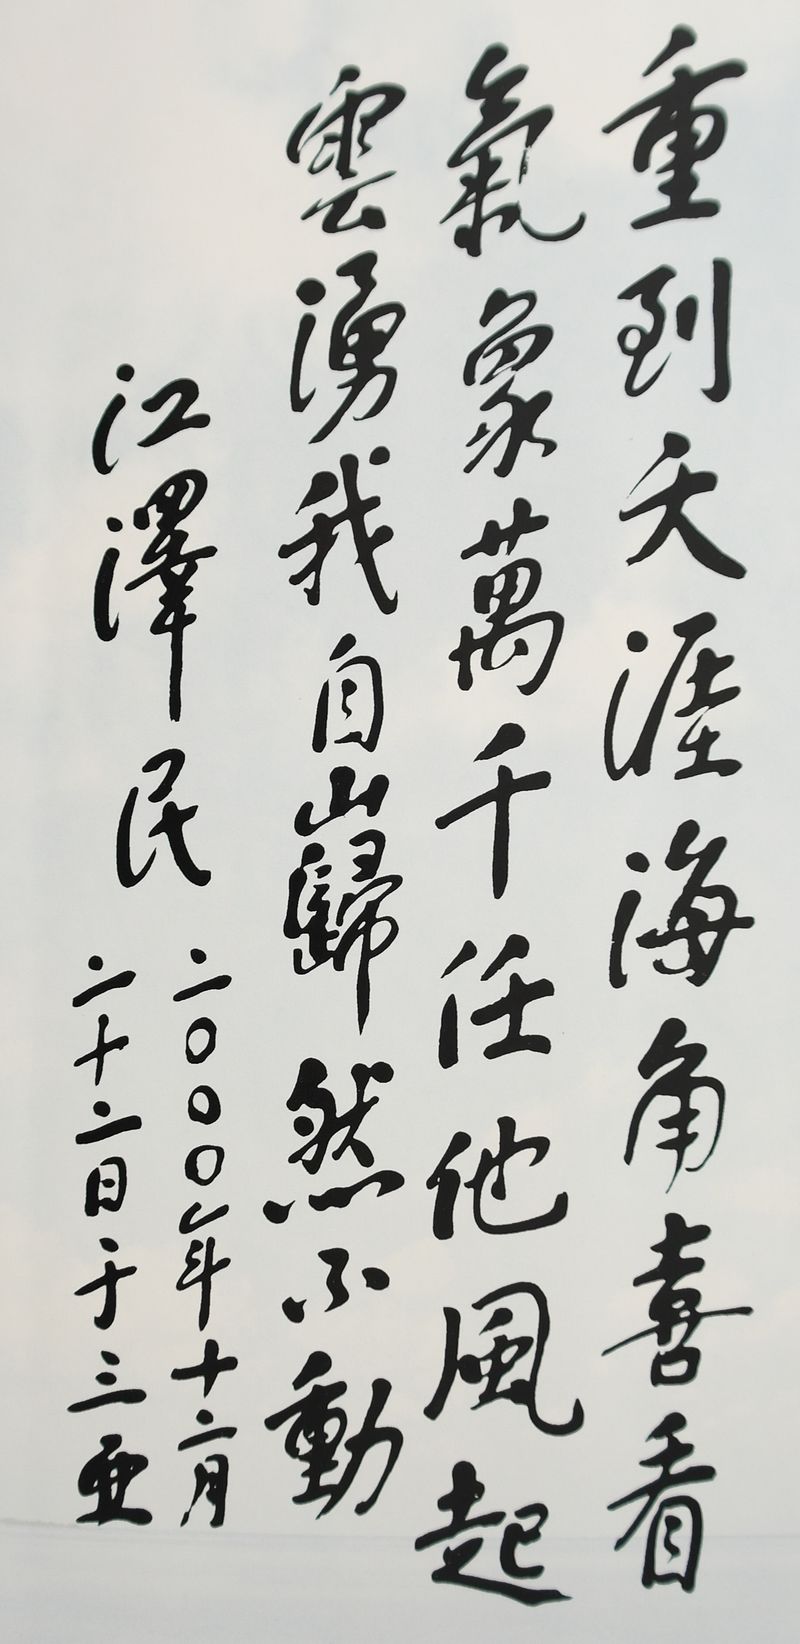 重到天涯海角喜看
氣象萬千任他風起
雲湧我自巋然不動
江澤民
二〇〇〇年十二月
二十二日于三亞